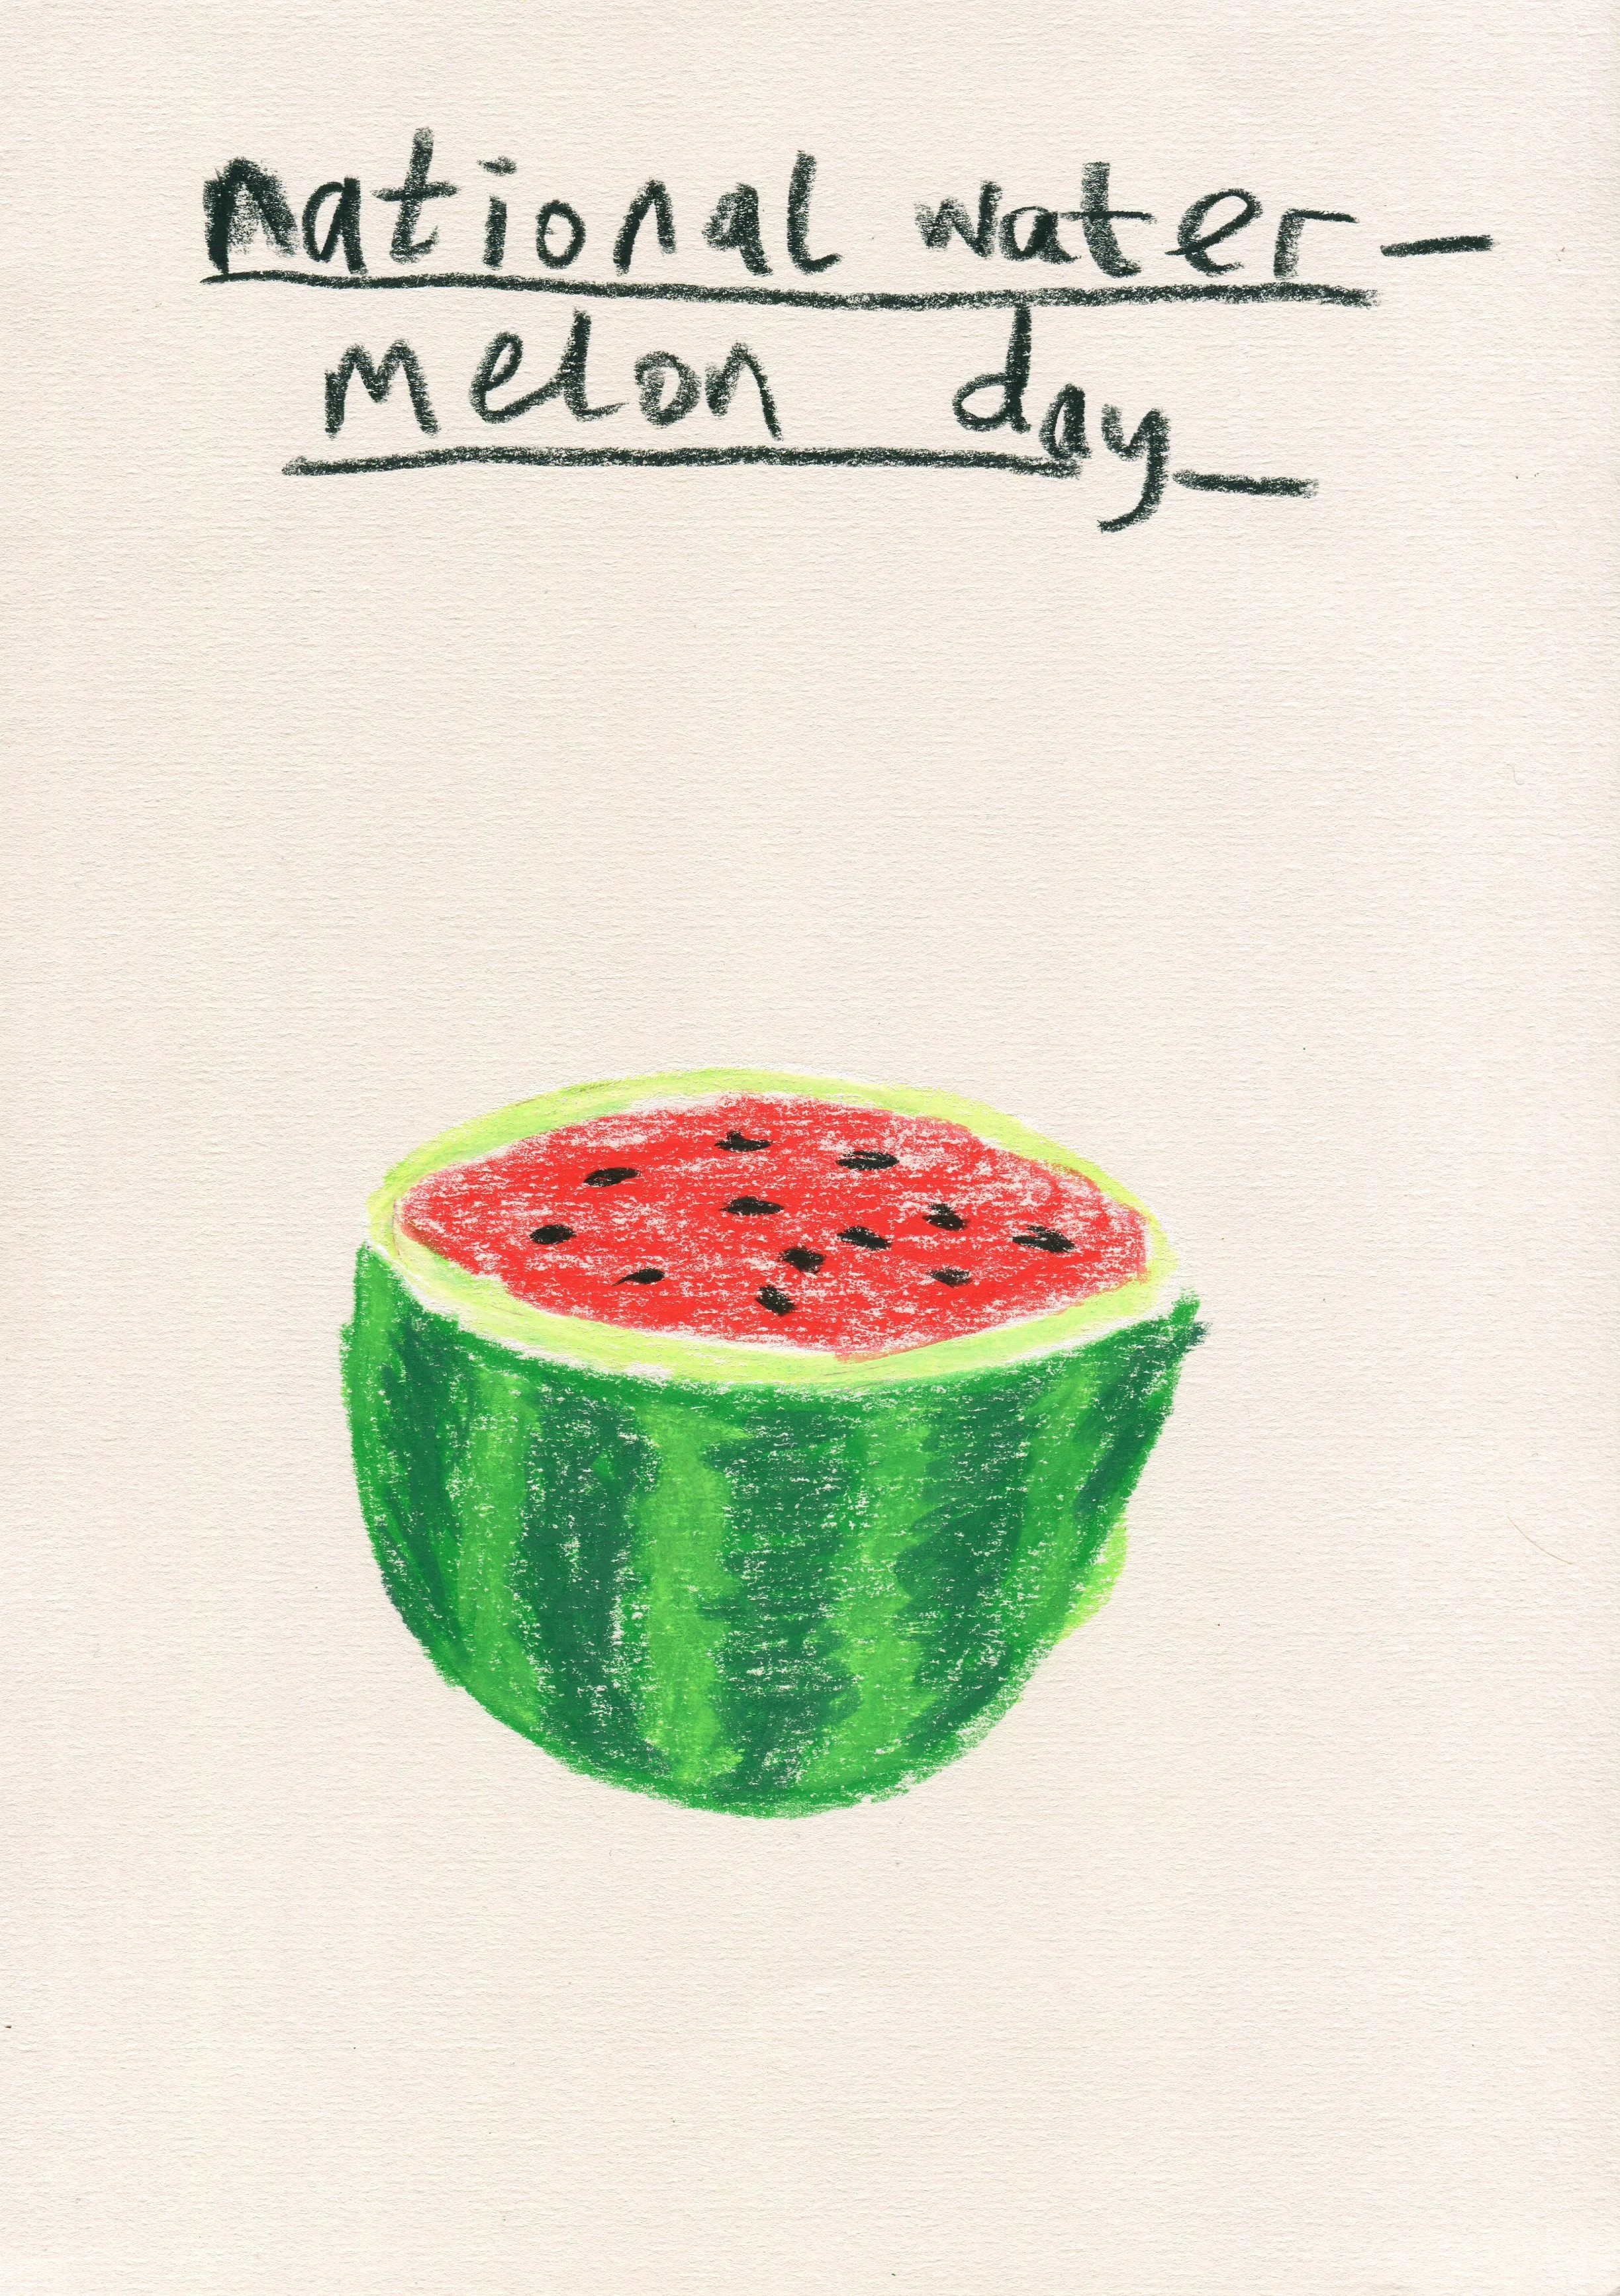 national water-
melon day